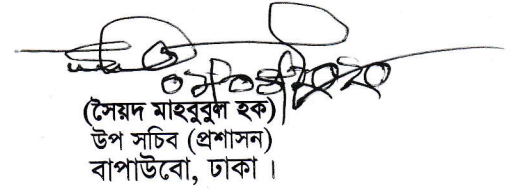 (সৈয়দ মাহবুবুল হক)
উপ সচিব (প্রশাসন)
বাপাউবো, ঢাকা ।